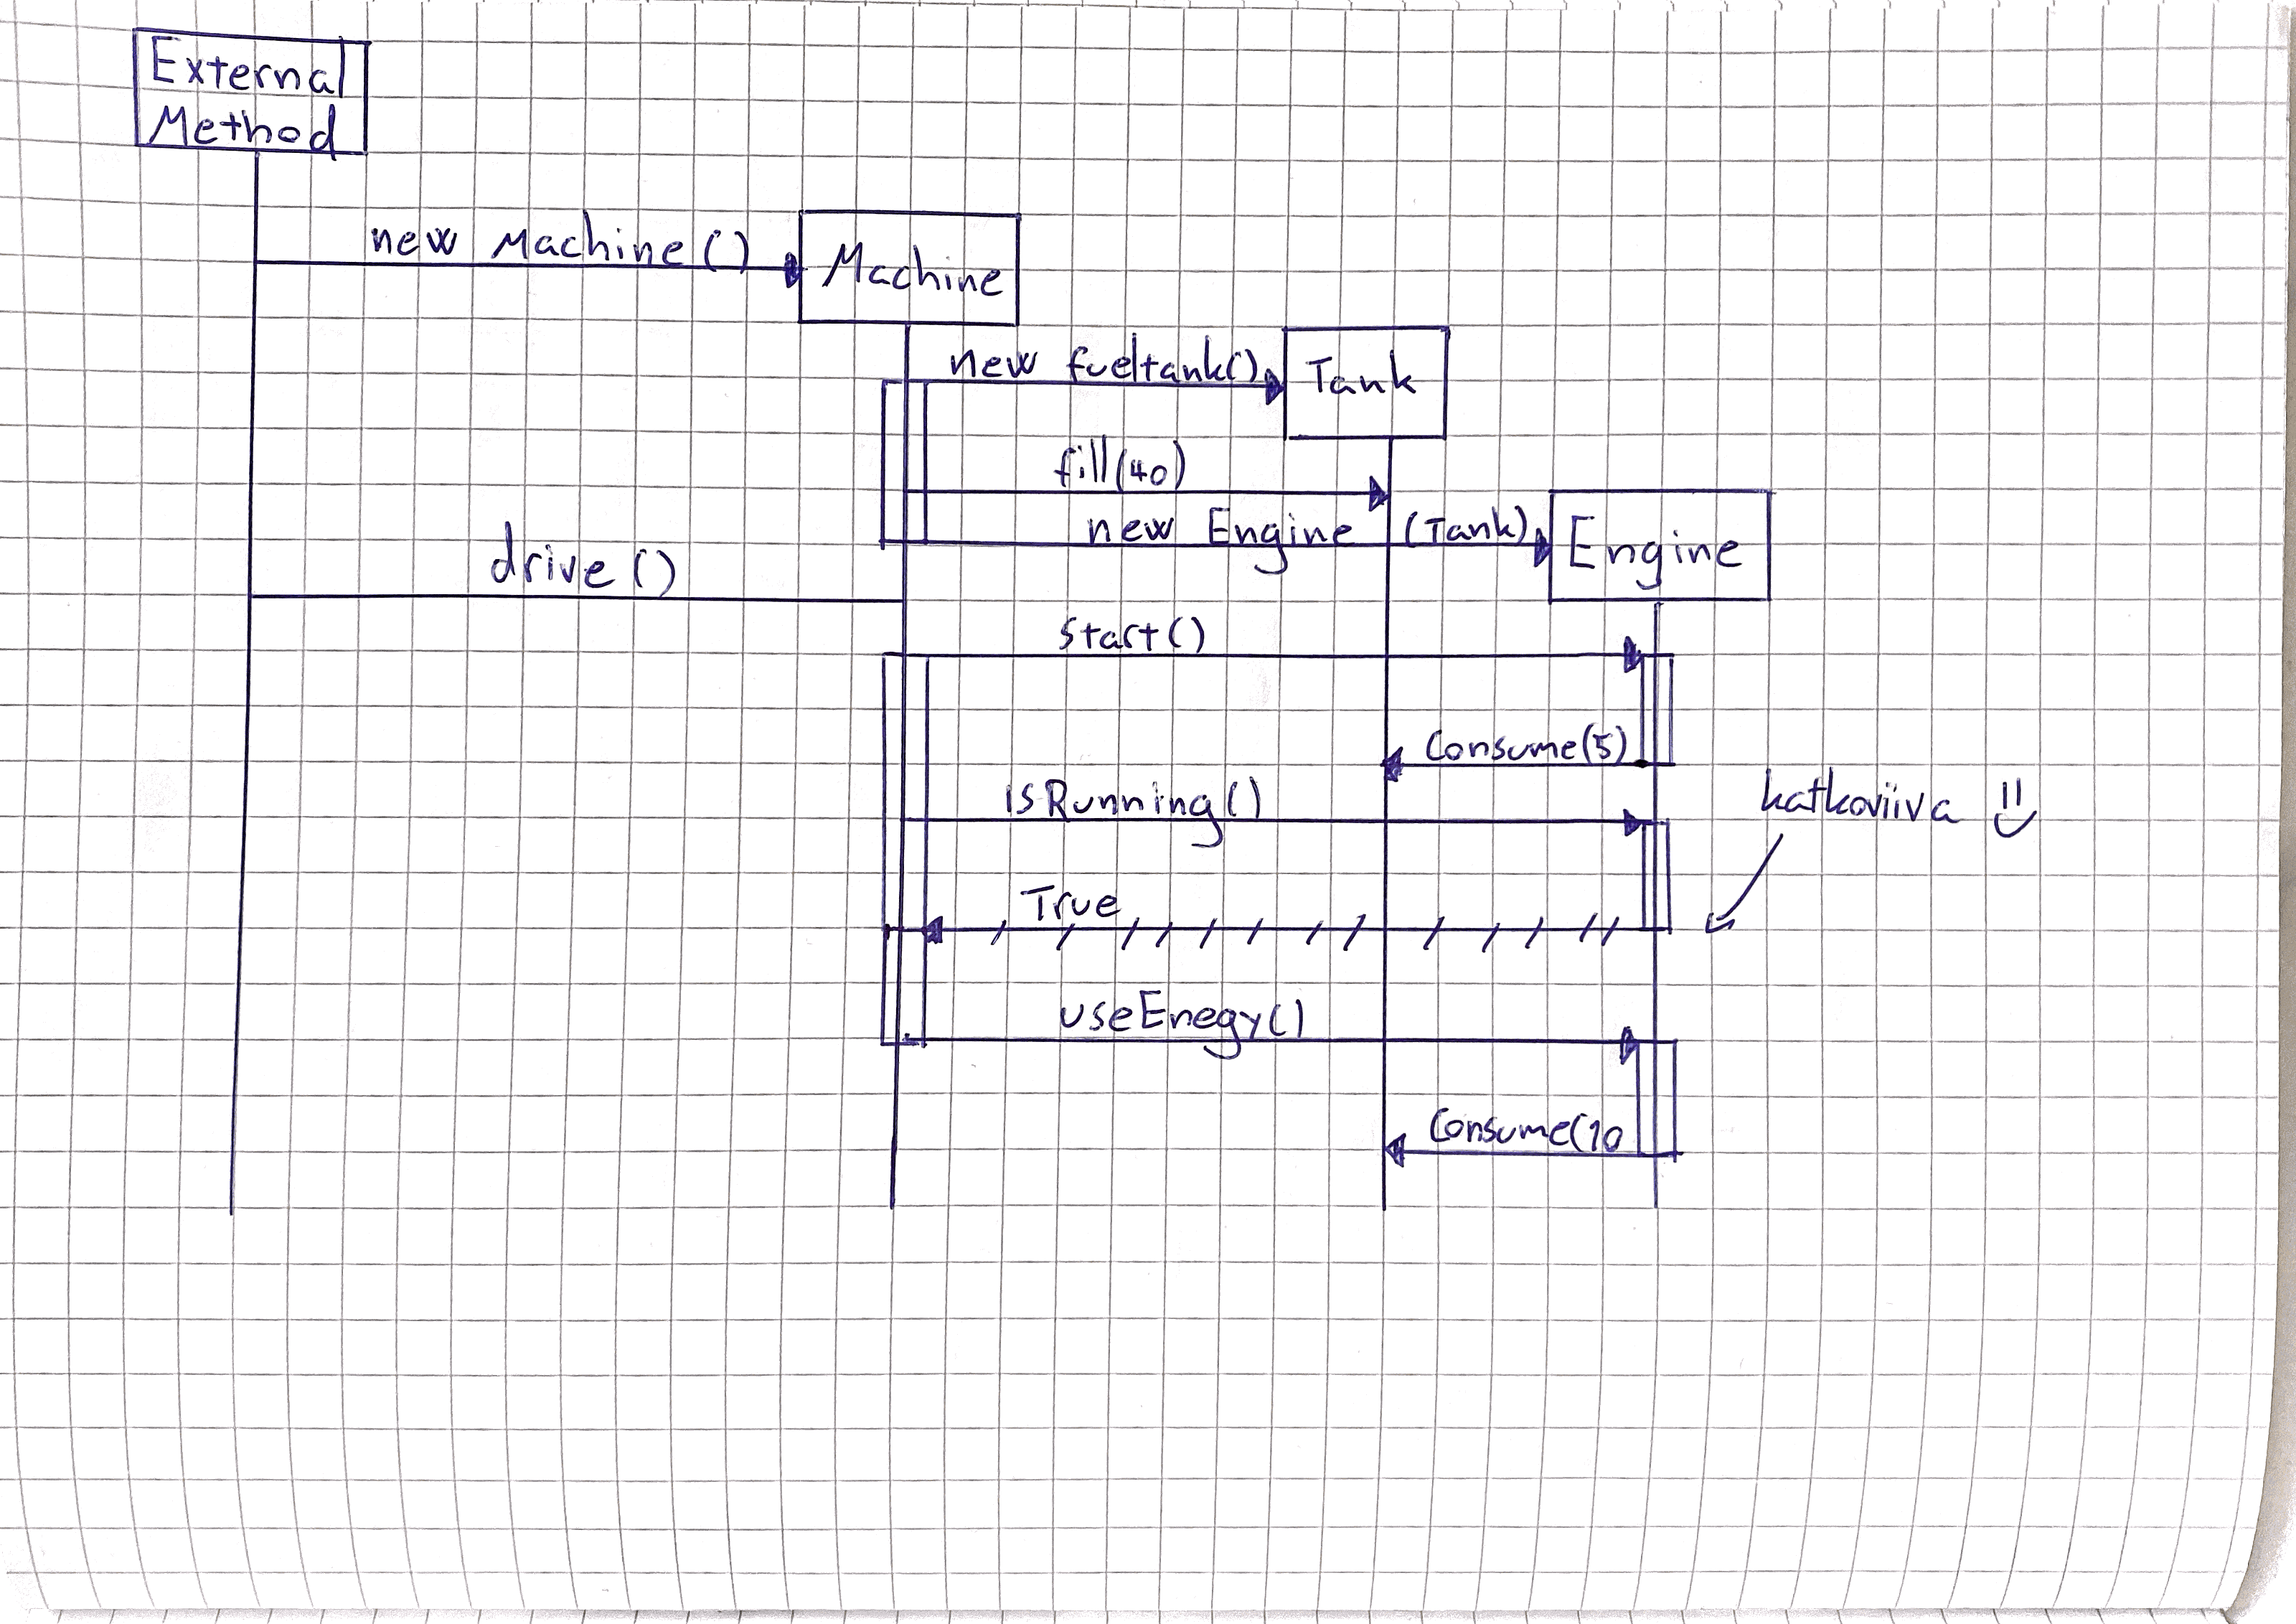 External
Method
new Machine()
Machine
new fueltank()
Tank
fill(40)
new Engine (Tank)
Engine
drive()
Start()
Consume(5)
isRunning()
katkoviiva
True
useEnegy()
Consume(10